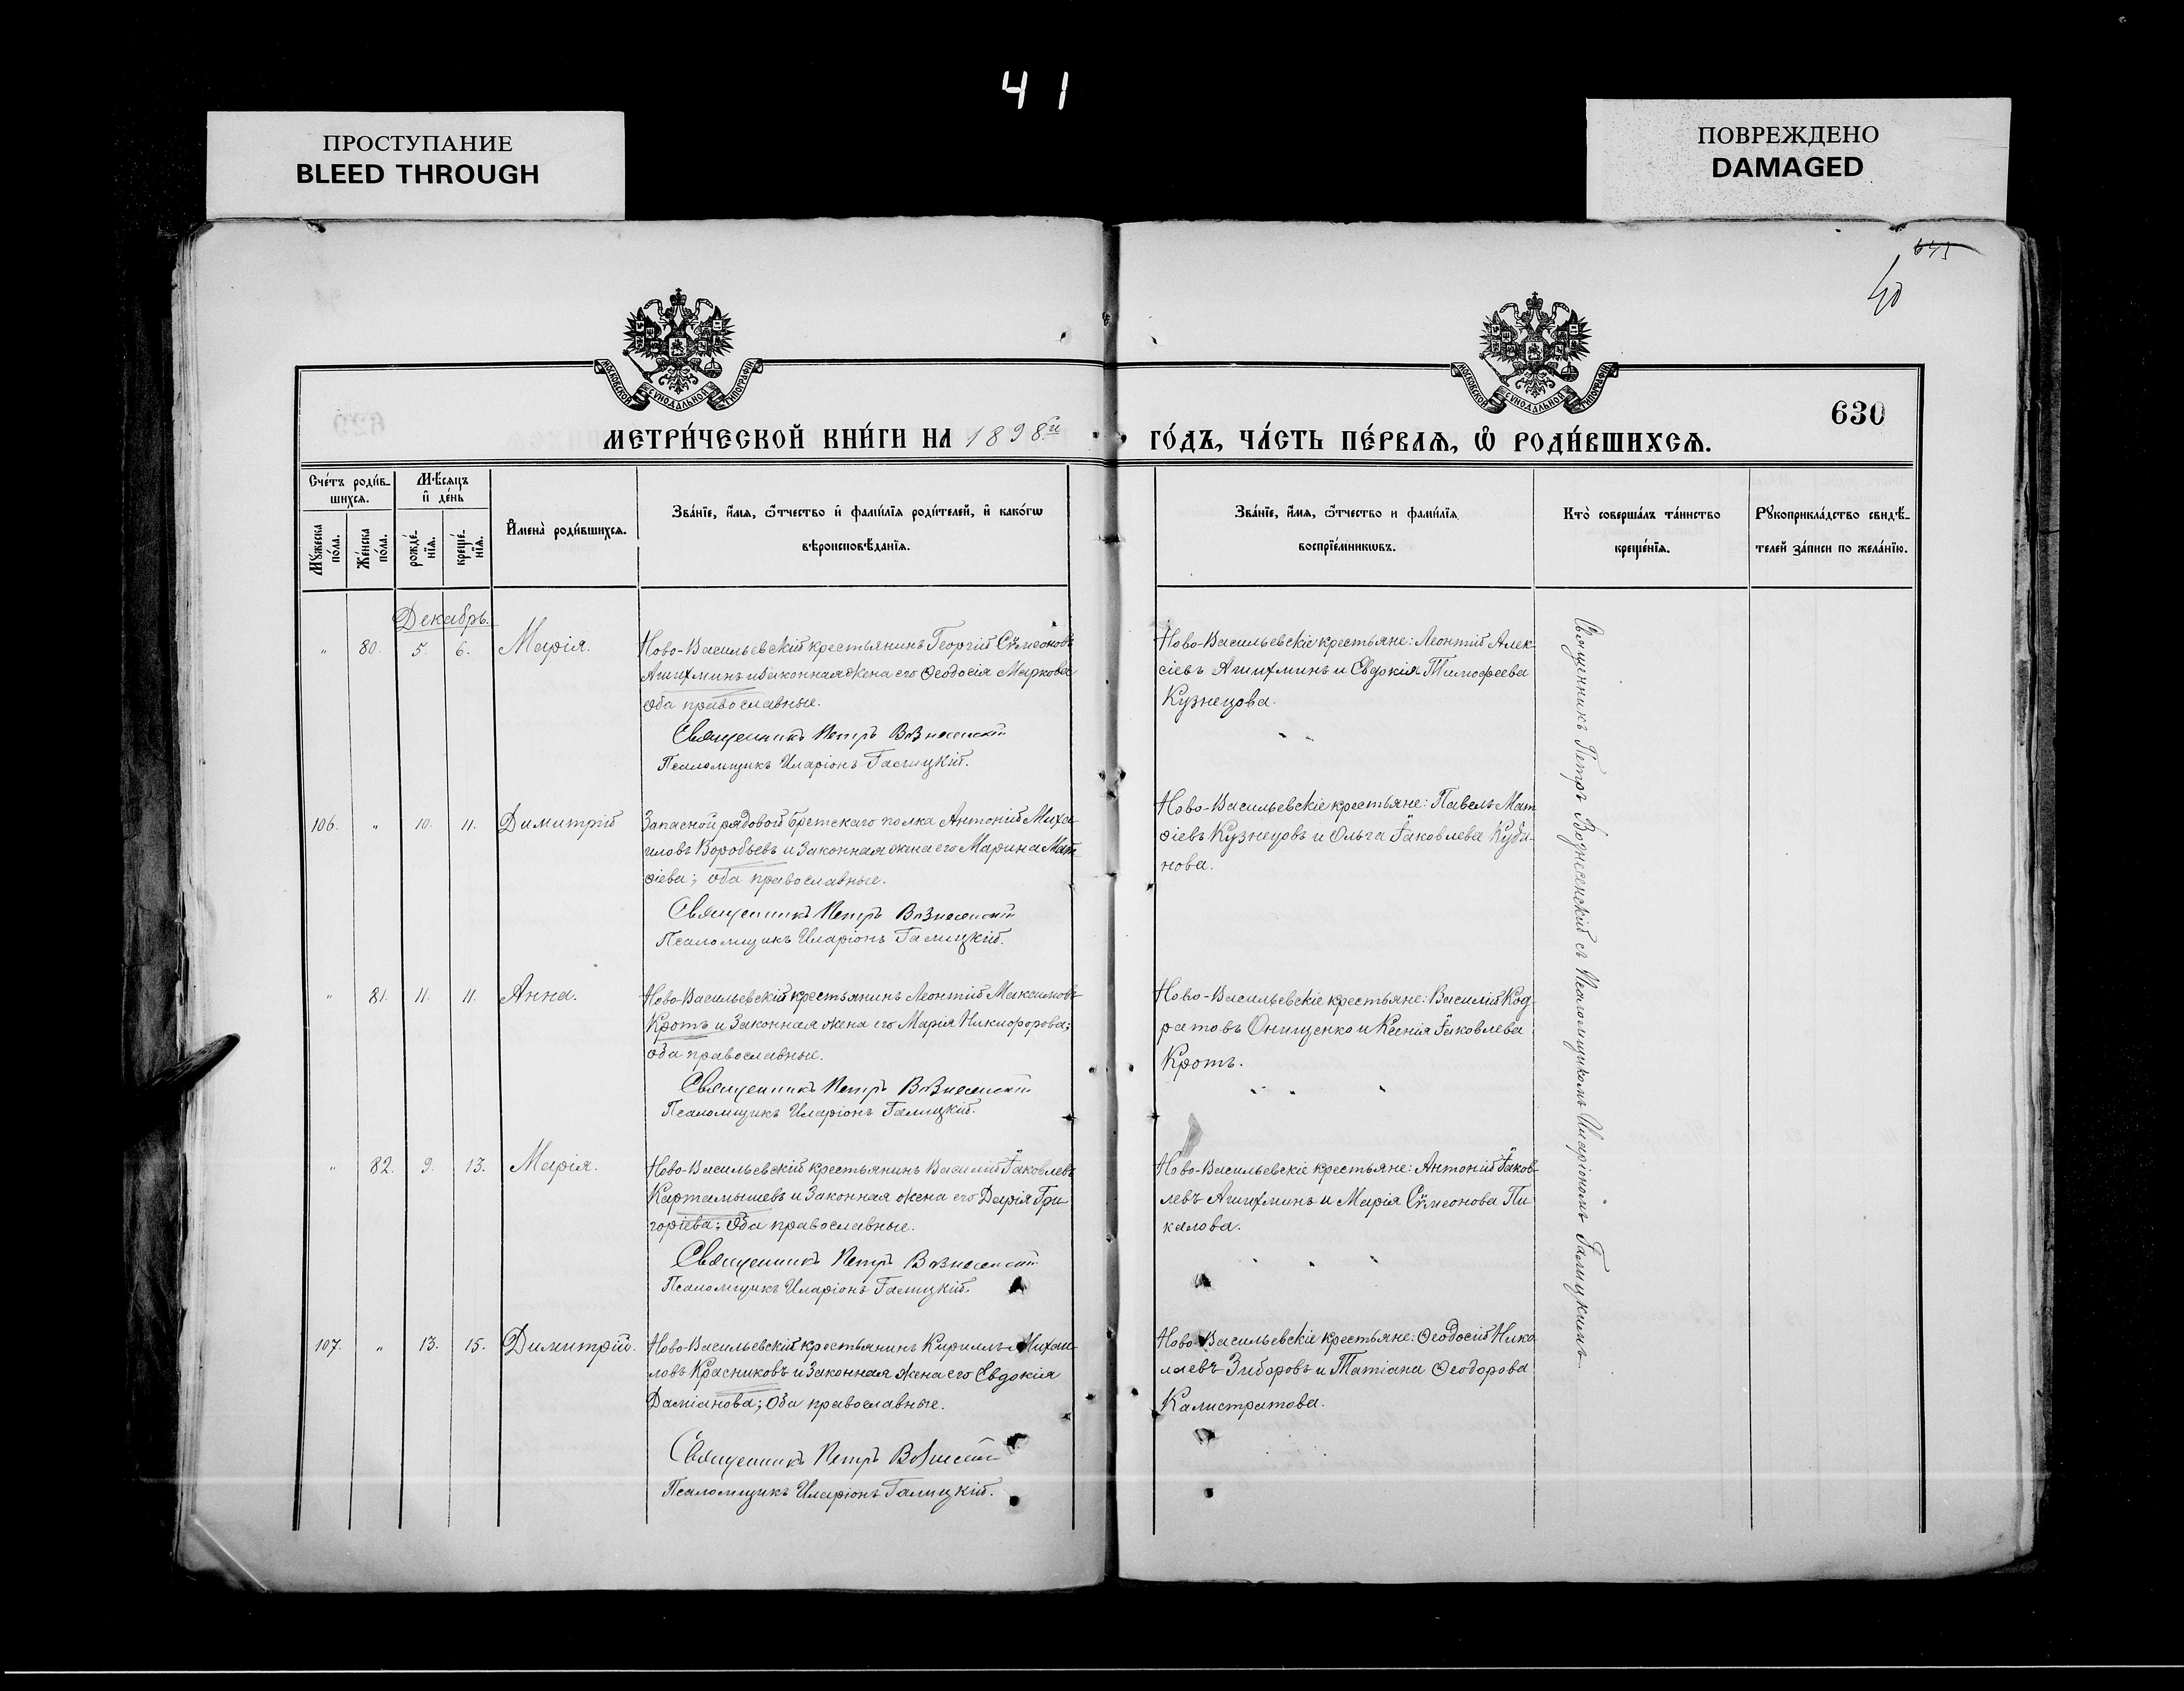 41
ПРОСТУПАНИЕ
BLEED THROUGH
ПОВРЕЖДЕНО
DAMAGED
40
630
МОСКОВСКОЙ СУНОДАЛЬНОЙ ТИПОГРАФІИ
МОСКОВСКОЙ СУНОДАЛЬНОЙ ТИПОГРАФІИ
МЕТРИ́ЧЕСКОЙ КНИ́ГИ НА 1898й
ГО́ДЪ, ЧА́СТЬ ПЕ́РВАѦ, Ѡ҆ РОДИ́ВШИХСѦ.
Сче́тъ роди́в-
шихсѧ.
Мꙋ́жеска по́ла.
Же́нска по́ла.
Мѣ́сѧцъ
и҆ де́нь
рожде́-
нїѧ.
креще́-
нїѧ.
И҆мена̀ роди́вшихсѧ.
Зва́нїе, и҆́мѧ, ѻ҆́тчество и҆ фами́лїѧ роди́телей, и҆ како́гѡ
вѣроисповѣ́данїѧ.
Зва́нїе, и҆́мѧ, ѻ҆́тчество и фами́лїѧ
воспрїе́мникѡвъ.
Кто̀ соверша́лъ та́инство
креще́нїѧ.
Рꙋкоприкла́дство свидѣ́-
телей за́писи по жела́нїю.
Декабрь.
" 80. 5. 6. Марія.
Ново-Васильевскій крестьянинъ Георгій Сѵмеоновъ
Агишминъ и законная жена его Ѳеодосія Маркова
оба православные.
Священникъ Петръ Вознесенскій
Псаломщикъ Иларіонъ Галицкій.
Ново-Васильевскіе крестьяне: Леонтій Алек-
сіевъ Агишминъ и Евдокія Тимофеева
Кузнецова.
106. " 10. 11. Димитрій
Запасной рядовой Брестскаго полка Антоній Миха-
иловъ Воробьевъ и Законная жена его Марина Мат-
ѳіева; оба православные.
Священникъ Петръ Вознесенскій
Псаломщикъ Иларіонъ Галицкій.
Ново-Васильевскіе крестьяне: Павелъ Мат
ѳіевъ Кузнецовъ и Ольга Іаковлева Куди-
нова.
" 81. 11. 11. Анна.
Ново-Васильевскій крестьянинъ Леонтій Максимовъ
Кротъ и Законная жена его Марія Никифорова;
оба православные.
Священникъ Петръ Вознесенскій
Псаломщикъ Иларіонъ Галицкій.
Ново-Васильевскіе крестьяне: Василій Код-
ратовъ Онищенко и Ксенія Іаковлева
Кротъ.
" 82. 9. 13. Марія.
Ново-Васильевскій крестьянинъ Василій Іаковлевъ
Картамышевъ и Законная жена его Дарія Гри
горіева; Оба православные.
Священникъ Петръ Вознесенскій
Псаломщикъ Иларіонъ Галицкій.
Ново-Васильевскіе крестьяне: Антоній Іаков-
левъ Агишминъ и Марія Сѵмеонова Пи
калова.
107. " 13. 15. Димитрій.
Ново-Васильевскій крестьянинъ Кириллъ Михаи-
ловъ Красниковъ и Законная жена его Евдокія
Даміанова; Оба православные.
Священникъ Петръ Вознесенскій
Псаломщикъ Иларіонъ Галицкій.
Ново-Васильевскіе крестьяне: Ѳеодосій Нико
лаевъ Зиборовъ и Татіана Ѳеодорова
Калистратова.
Священникъ Петръ Вознесенскій съ Псаломщикомъ Иларіономъ Галицкимъ